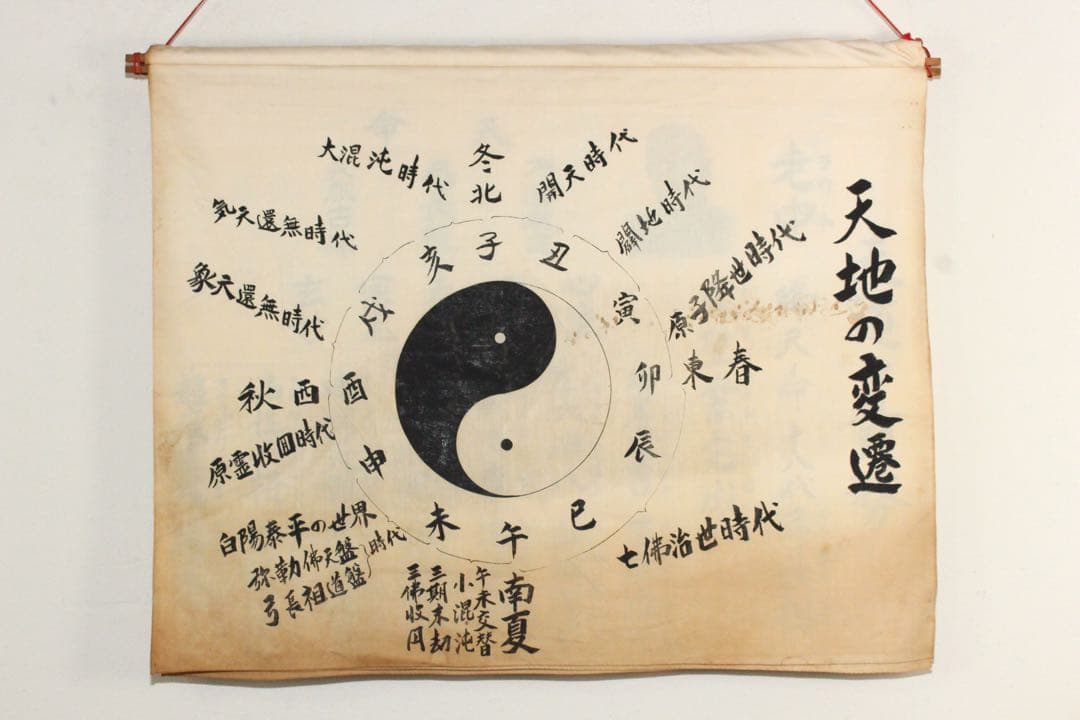 天地の変遷
冬
北
開天時代
闢地時代
原子降世時代
春
東
七佛治世時代
南夏
午未交替
小混沌
三期末劫
三佛收円
白陽泰平の世界
弥勒佛天盤
弓長祖道盤
時代
原霊收圓時代
秋
西
象天還無時代
気天還無時代
大混沌時代
子
丑
寅
卯
辰
巳
午
未
申
酉
戌
亥